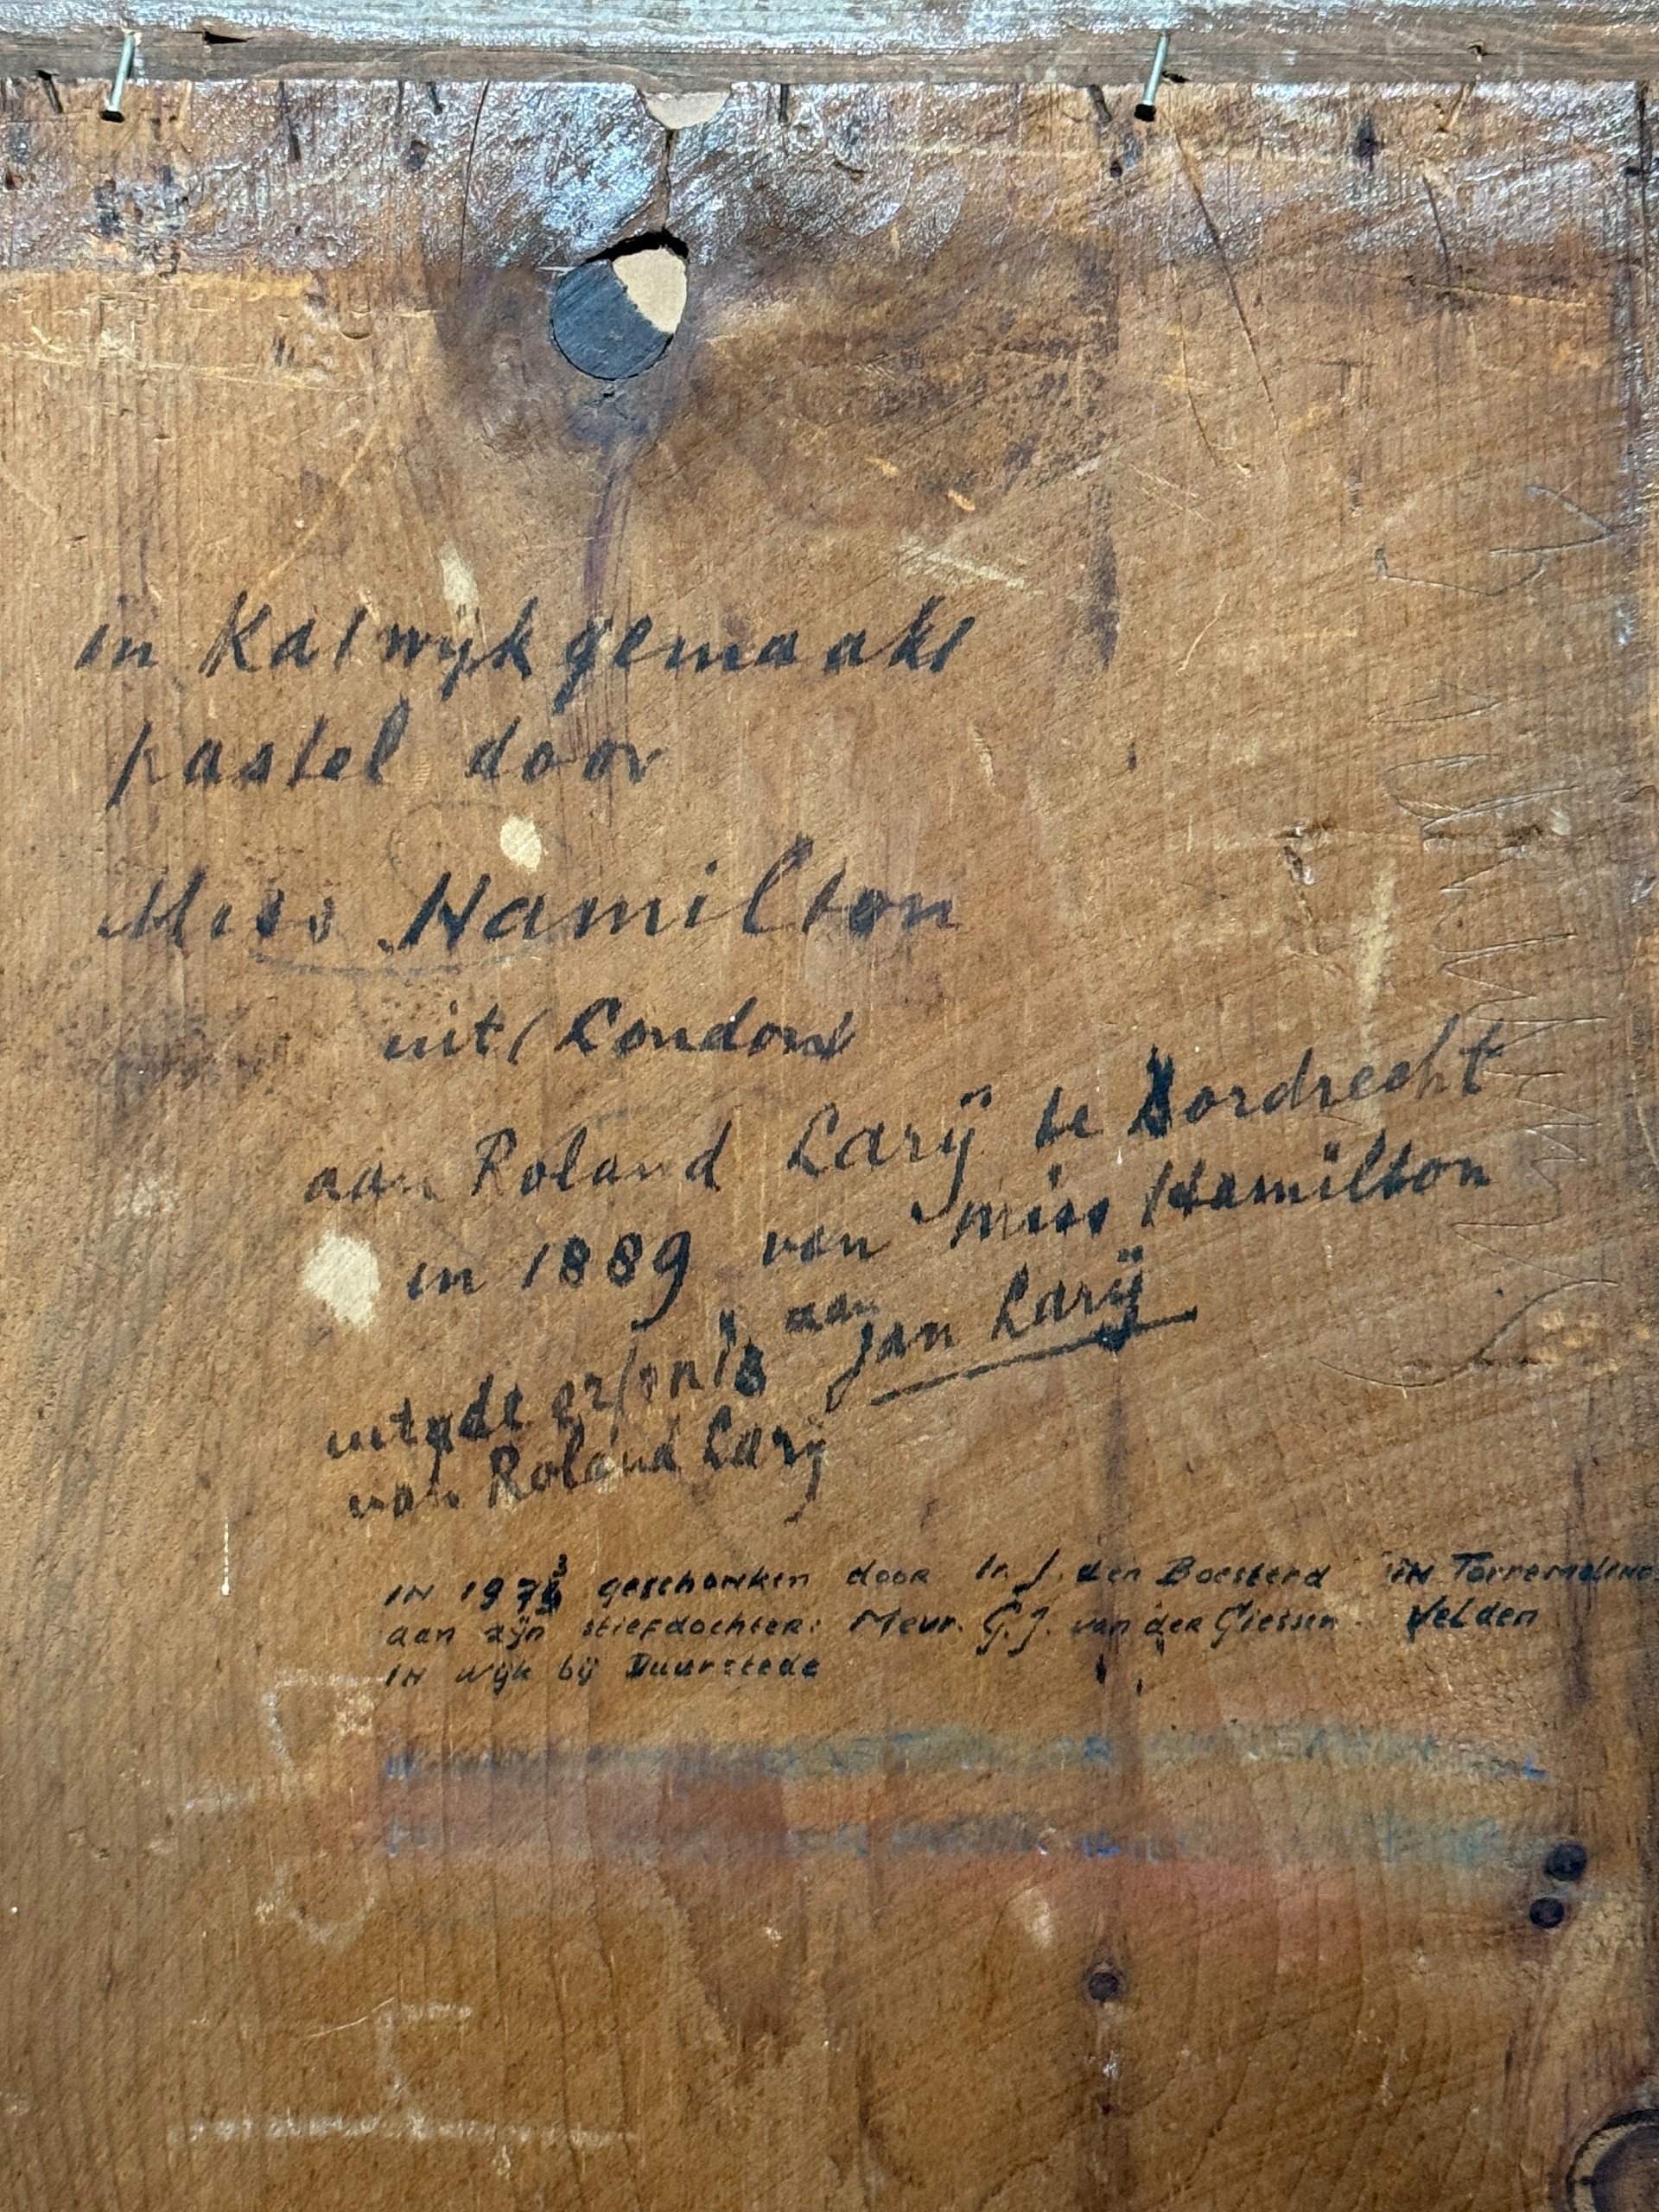 in Katwijk gemaakt
pastel door
Miss Hamilton
uit London
aan Roland Larij te Dordrecht
in 1889 van miss Hamilton
uit de erfenis aan Jan Larij
van Roland Larij
IN 1973 geschonken door Ir. J. den Boesterd IN Torremolinos
aan zijn stiefdochter: Mevr. G.J. van der Giessen - Velden
IN Wijk bij Duurstede